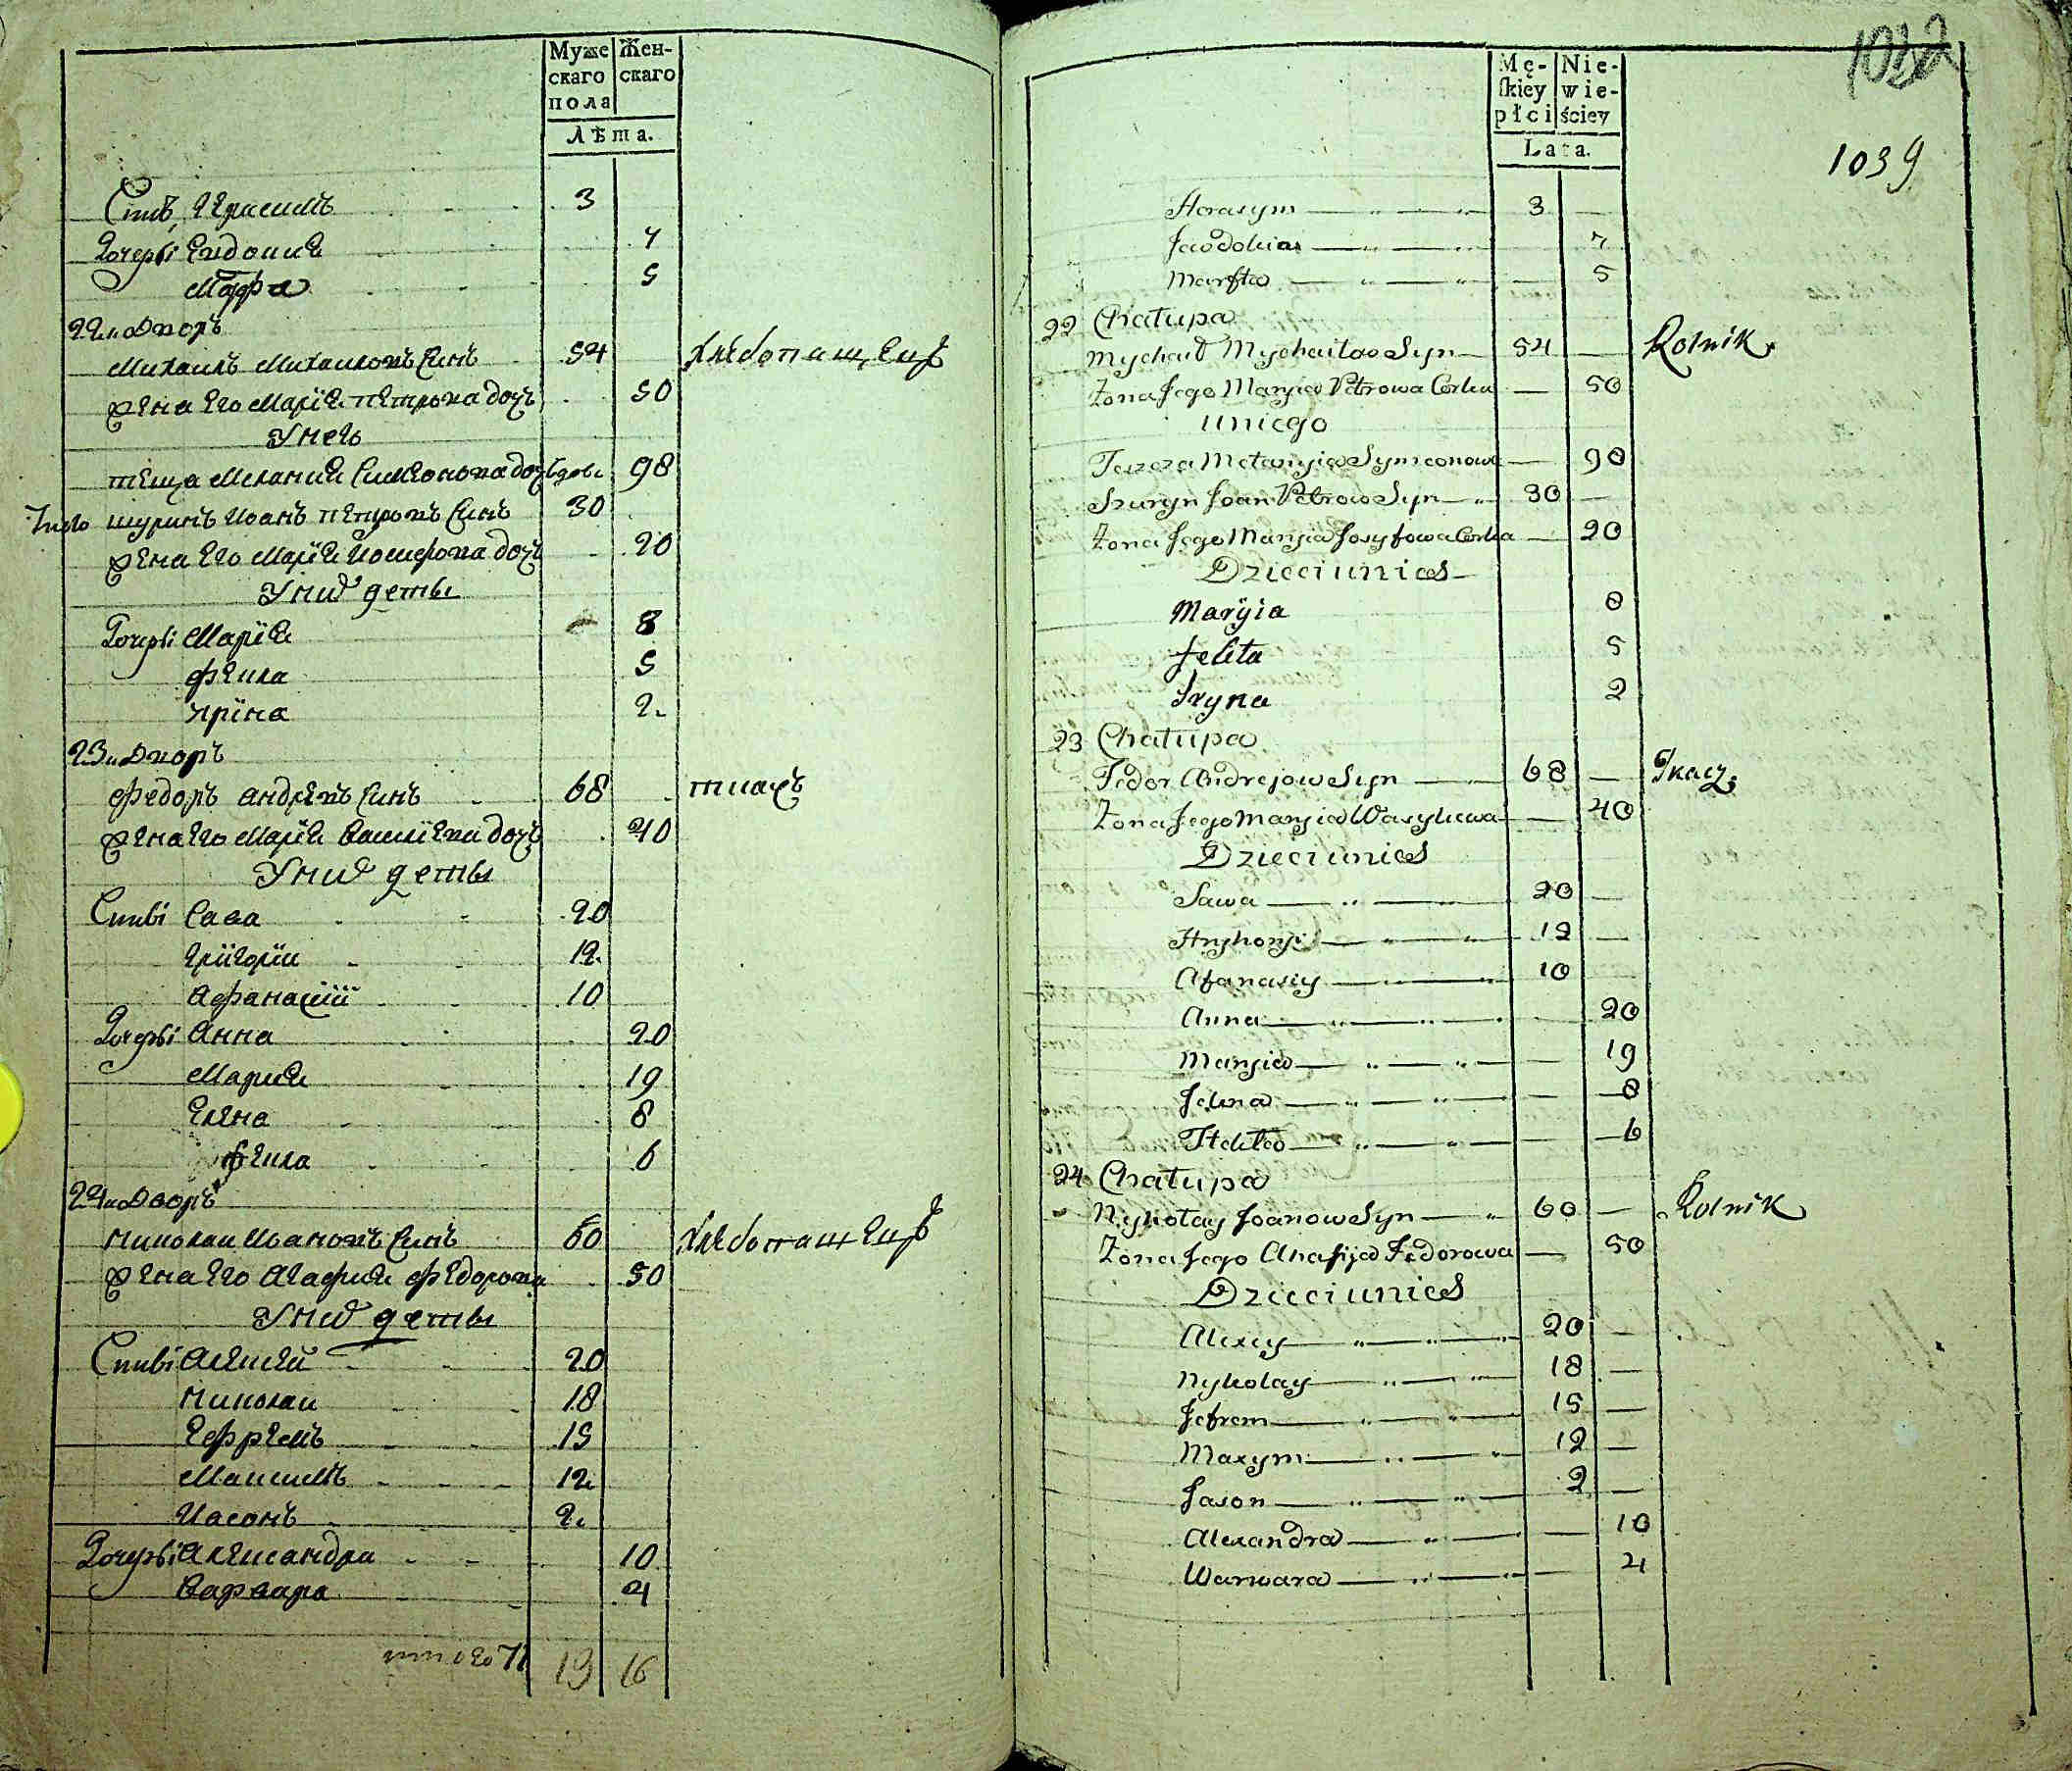 Муже Жен-
скаго скаго
пола
Лѣта.
Сынъ Герасимъ 3
Дочери Евдокия 7
Марфа 5
22 и Дворъ
Михаилъ Михаиловъ синъ 54 хлебопашецъ
Жена его Марія Петрова дочъ 50
У него
теща Мелания Симеонова доч вдова 98
шуринъ Иоанъ Петровъ Синъ 30
Жена его Марія Иосифова дочъ 20
У них дети
Дочери Марія 8
Фекла 5
Ирина 2
23 и Дворъ
Федоръ Андреевъ Синъ 68 ткачъ
Жена его Марія Василіева дочъ 40
У них дети
Сини Сава 20
Григории 12
Афанасий 10
Дочери Анна 20
Мария 19
Елена 8
Фекла 6
24 и Дворъ
Николаи Ивановъ Синъ 60 хлебопашецъ
Жена его Агафия Федорова 50
У них дети
Сини Алексей 20
Николаи 18
Ефремъ 15
Максимъ 12
Иасонъ 2
Дочери Александра 10
Варвара 4
итого 71 13 16
1032
Mę- Nie-
ſkiey wie-
płci ściey
Lata.
1039
Herasym 3
Jewdokia 7
Marfta 5
22 Chałupa
Mychaił Mychaiłow Syn 54 Rolnik
Zona Jego Maryia Petrowa Corka 50
u niego
Teszcza Mełanyia Symeonowa 90
Szuryn Joan Petrow Syn 30
Zona Jego Maryia Josyfowa Corka 20
Dzieci u nich
Maryia 8
Fekła 5
Iryna 2
23 Chałupa
Fedor Andrejow Syn 68 Tkacz
Zona Jego Maryia Wasylewa 40
Dzieci u nich
Sawa 20
Hryhoryi 12
Afanasiy 10
Anna 20
Maryia 19
Jelena 8
Ftekła 6
24 Chałupa
Nykołay Joanow Syn 60 Rolnik
Zona Jego Ahafija Fedorowa 50
Dzieci u nich
Alexey 20
Nykołay 18
Jefrem 15
Maxym 12
Jason 2
Alexandra 10
Warwara 4